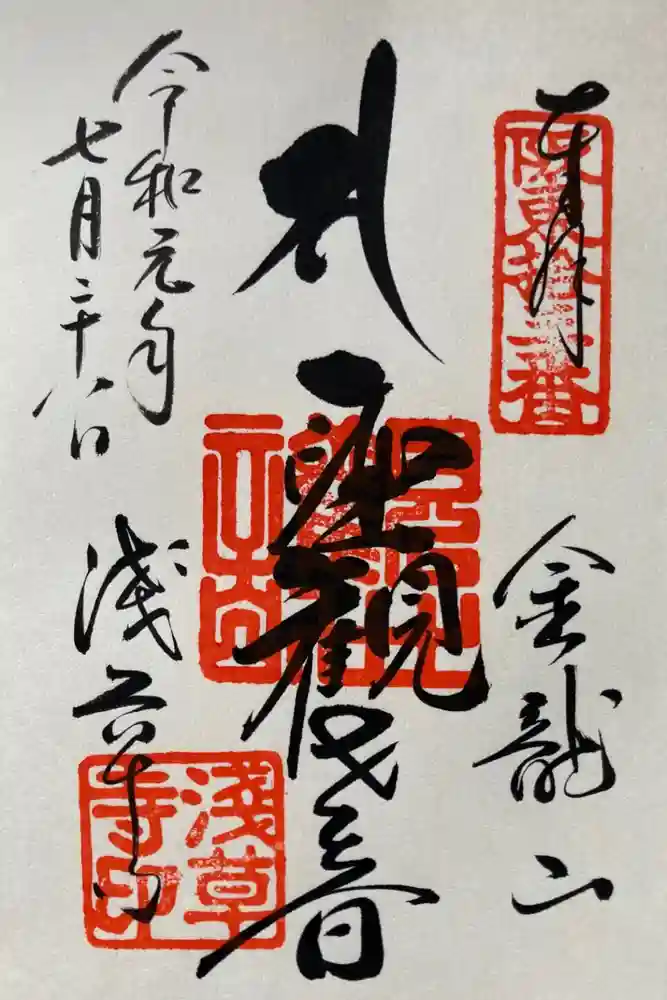 奉拝
阪東拾三番
金龍山
聖観世音
令和元年
七月二十八日
浅草寺
淺草寺印